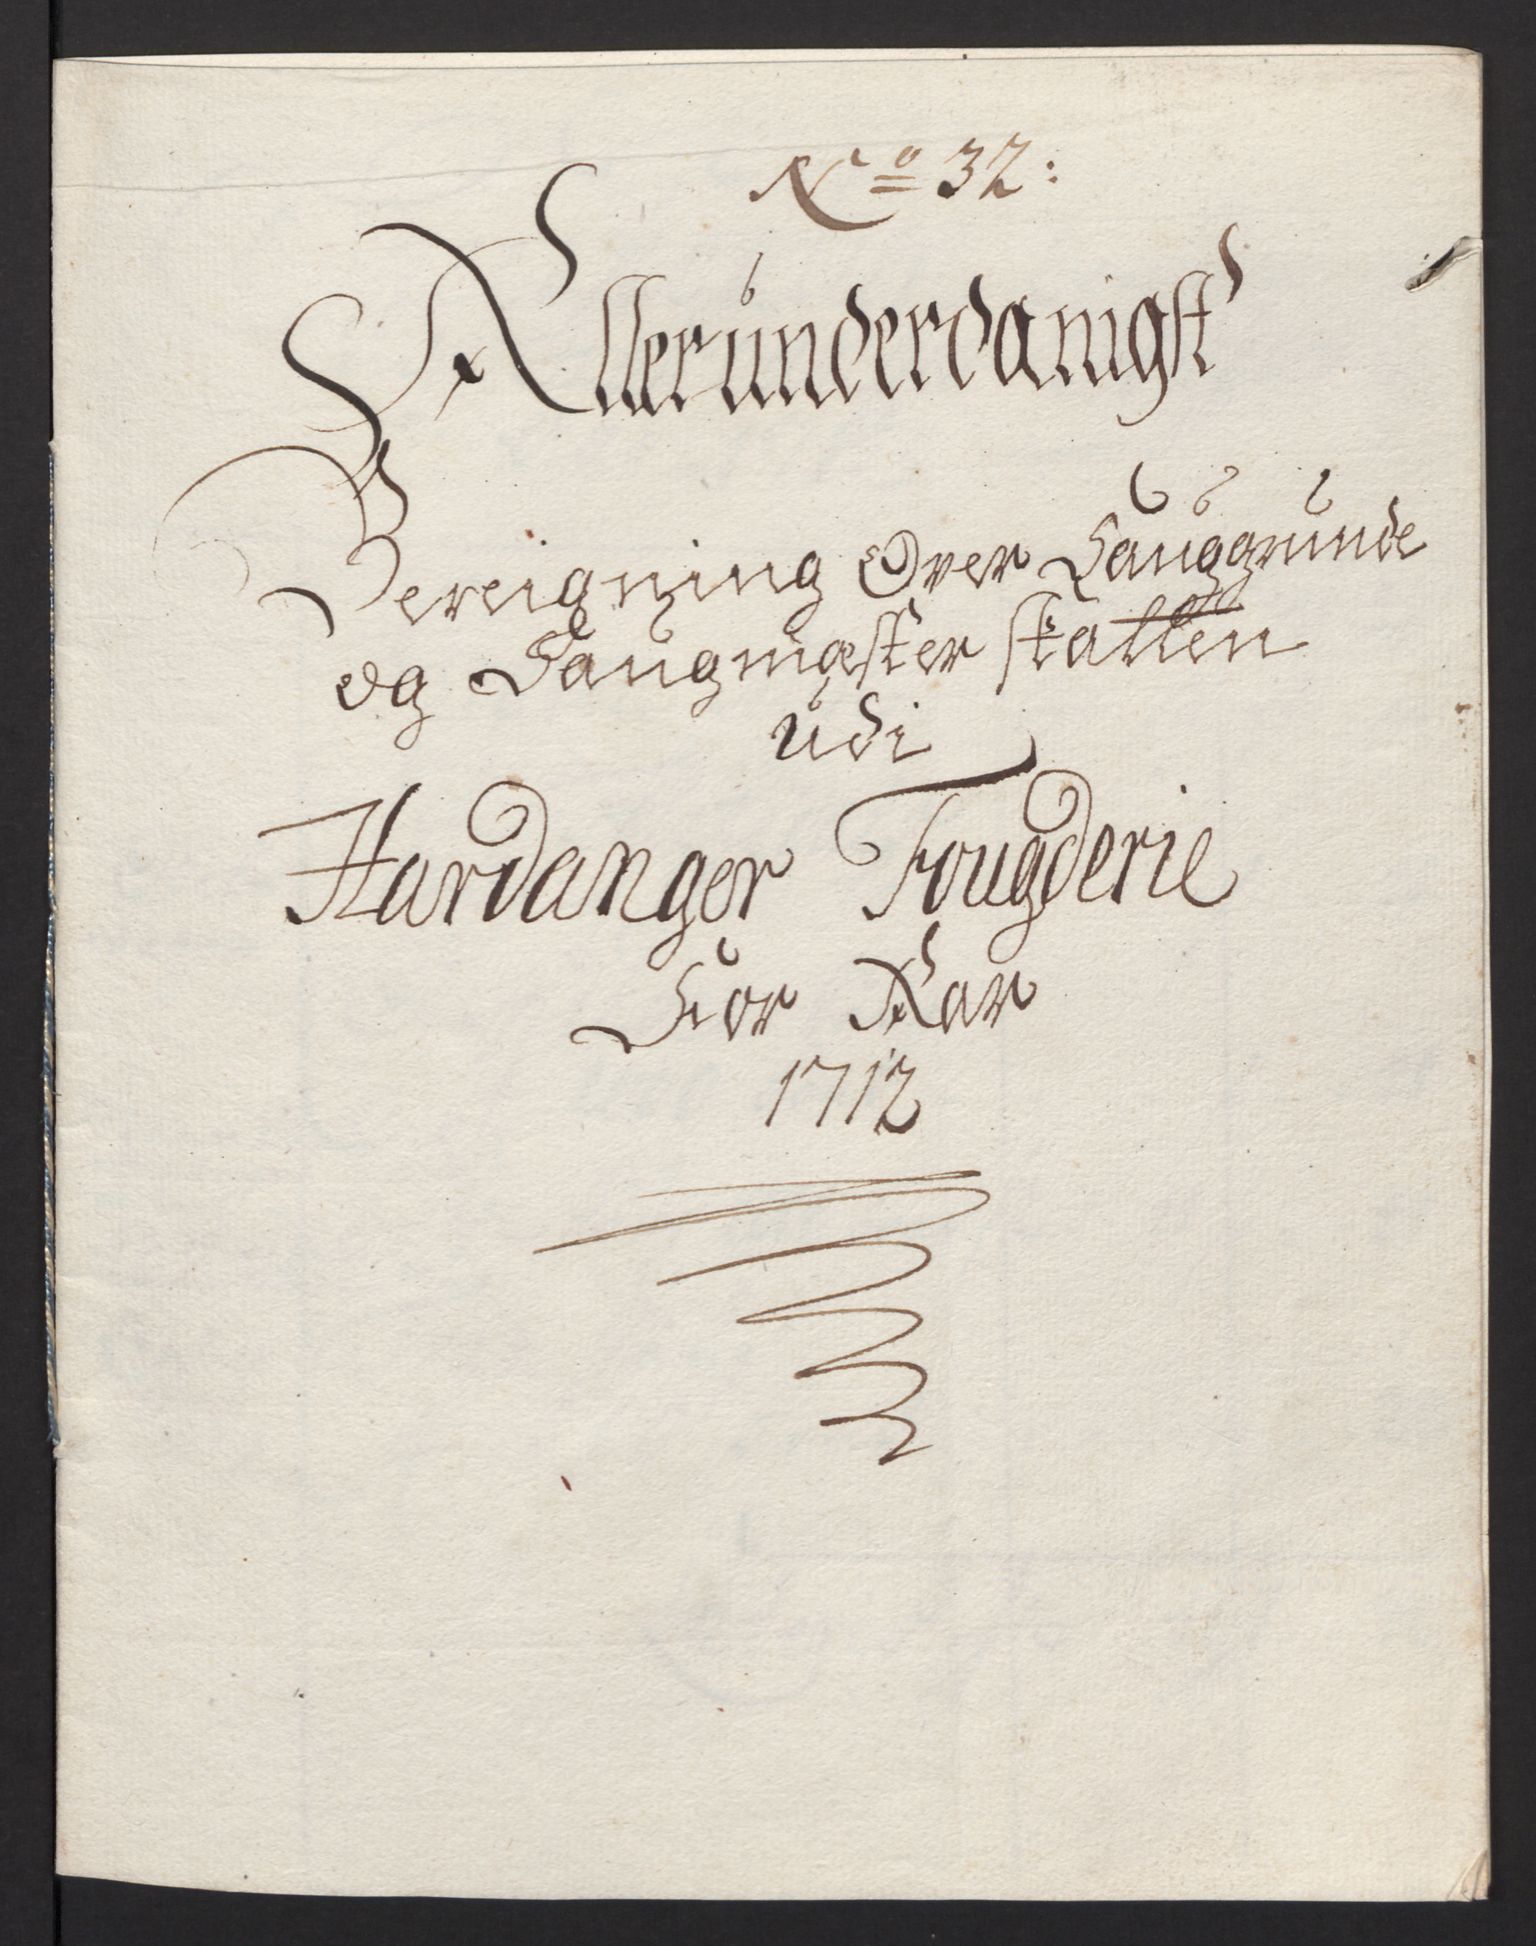 No 32:
Allerunderdanigst
Bereigning Over Sauggrunde
og Saugmæster skatten
udi
Hardanger Fougderie
For Aar
1712